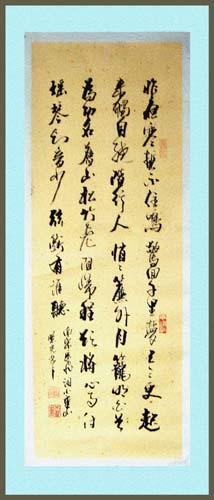 昨夜寒蛩不住鳴驚回千里夢已三更起
來獨自繞階行人悄悄簾外月籠明白首
為功名舊山松竹老阻歸程欲將心事付
瑤琴知音少弦斷有誰聽
南宋岳飛詞小重山